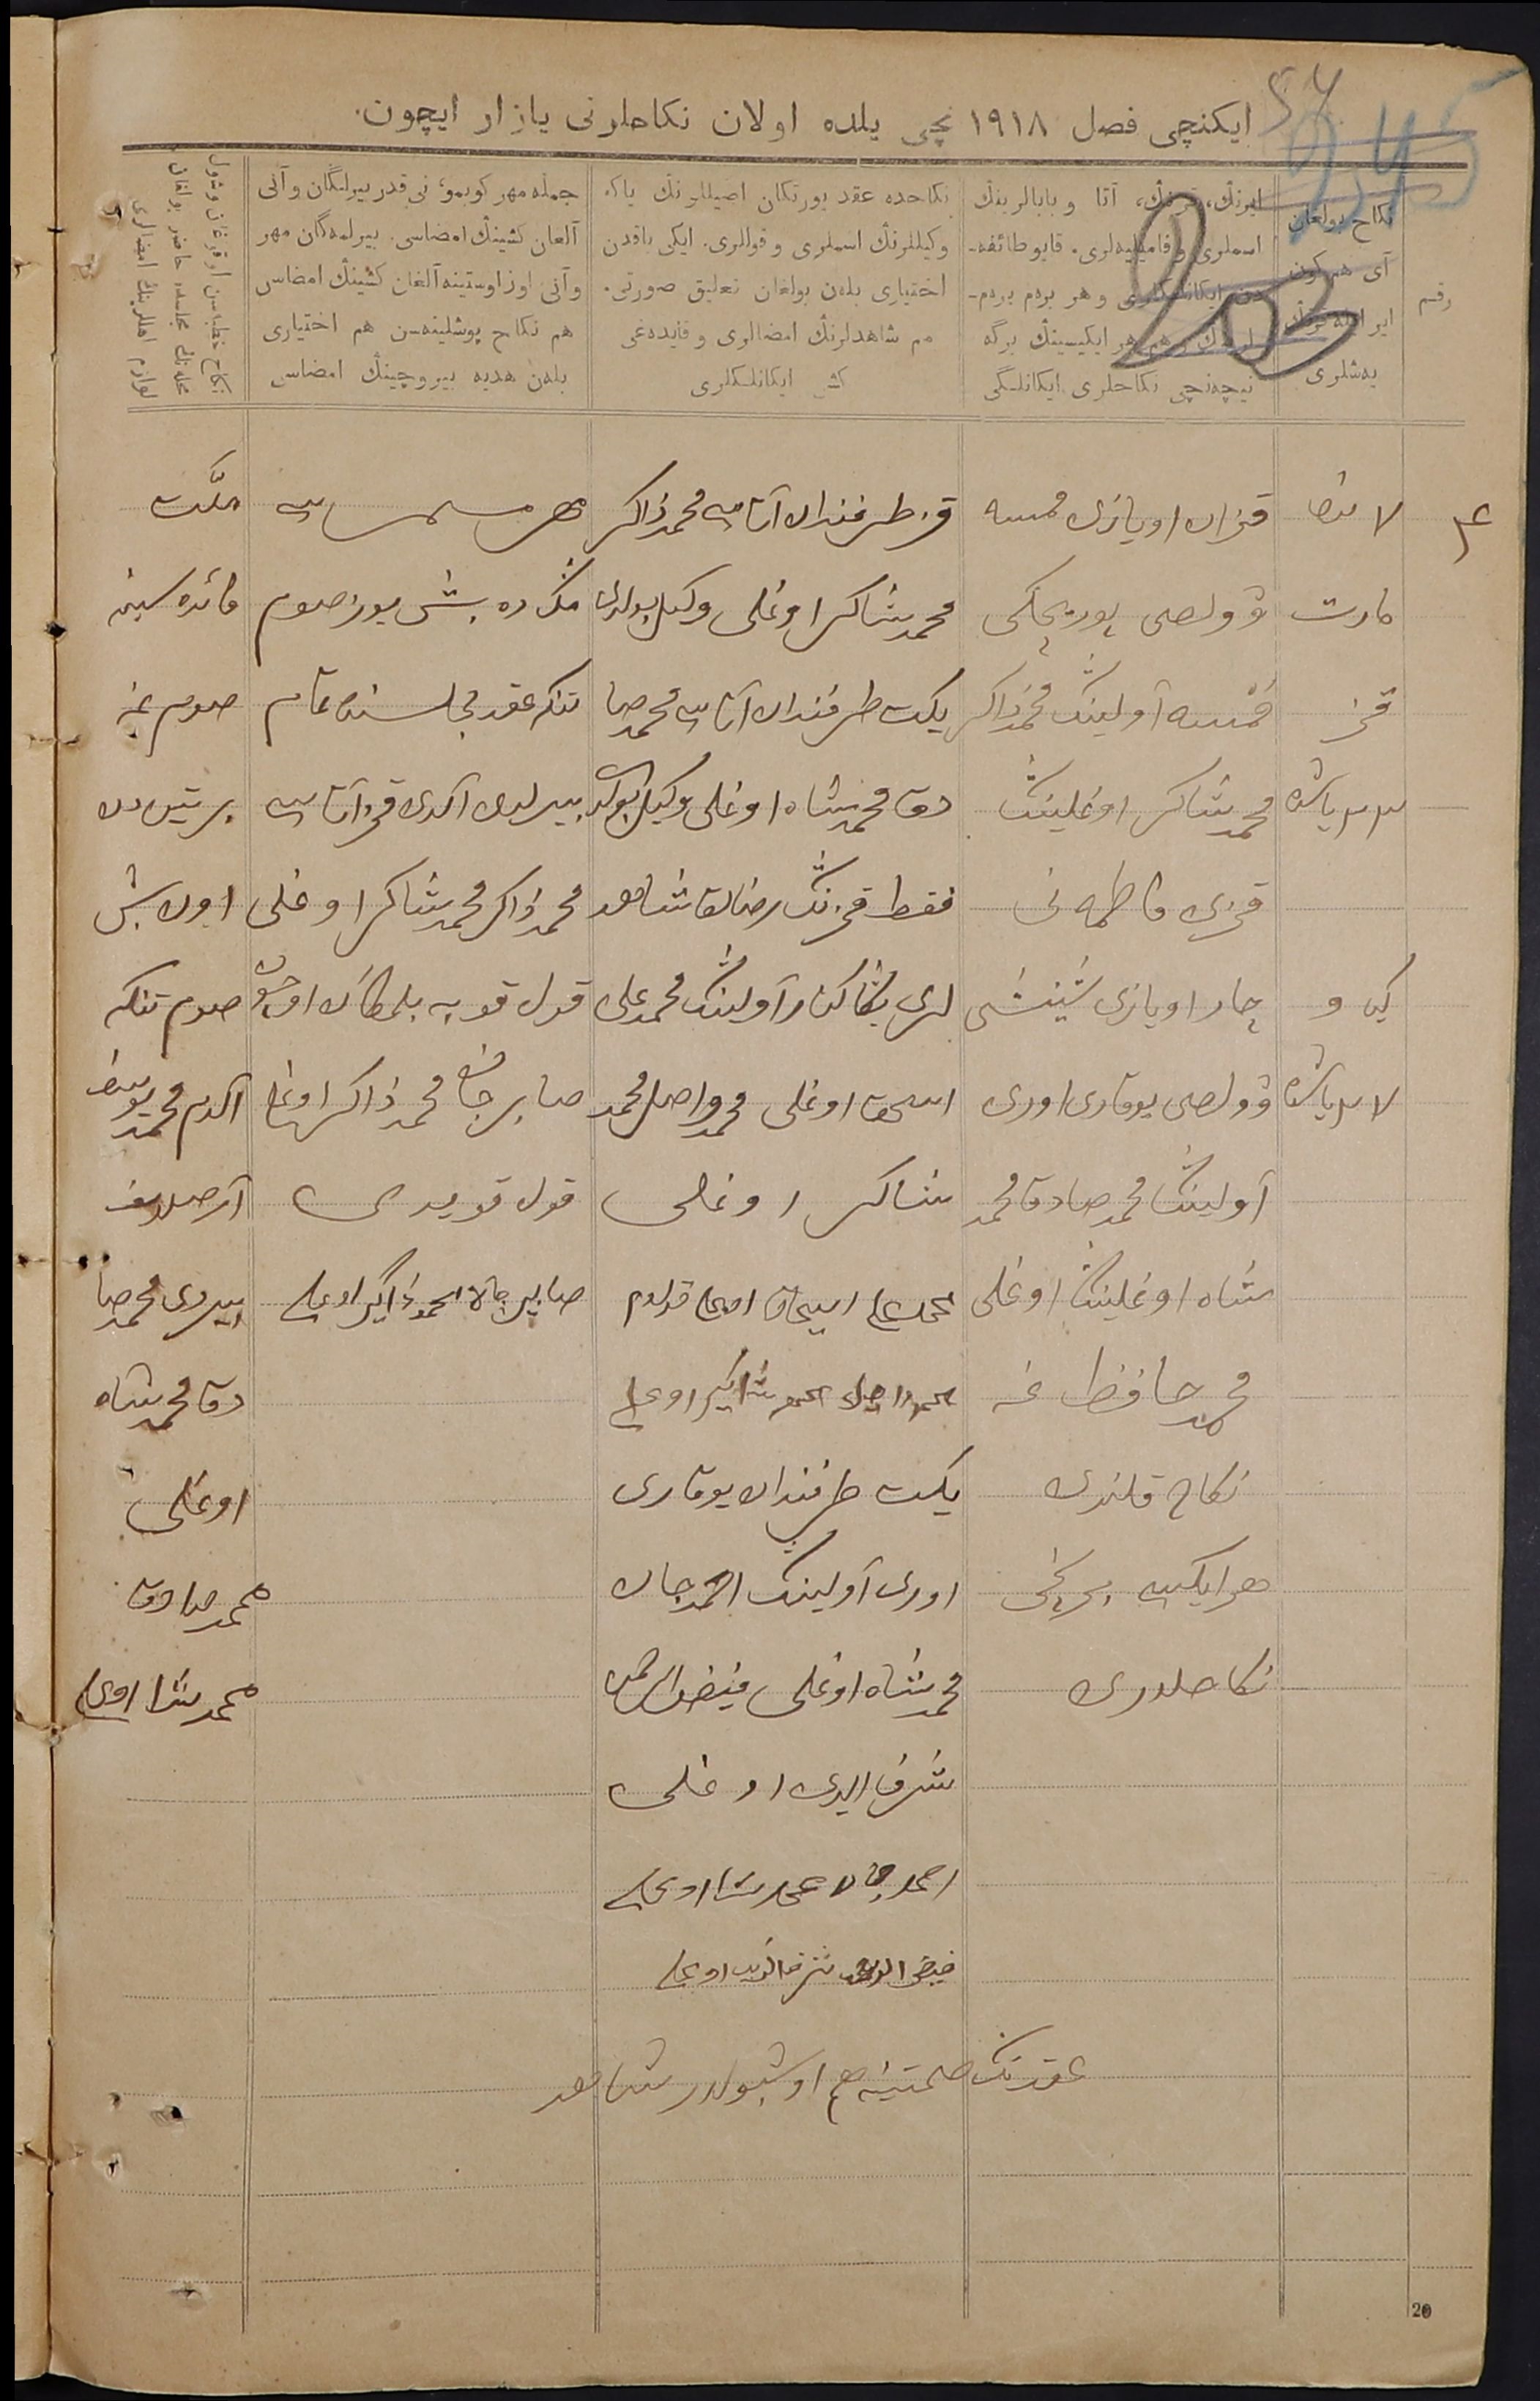 ایکنچی فصل ۱۹۱۸ نچی یلده اولان نکاحلرنی یازار ایچون.
رقم
نکاح بولغان
آی هم کون
ایر ایله قزنڭ
یەشلری
ایرنڭ، قزنڭ، آتا و بابالرینڭ
اسملری و فامیلیەلری. قایو طائفه-
دن ایکانلکلری و هر بردم یردم-
هم هر ایکیسینڭ برگه
نیچەنچی نکاحلری ایکانلگی
نکاحده عقد یورتکان اصیللرنڭ یاکه
وکیللرنڭ اسملری و قوللری. ایکی یاقدن
اختیاری بلەن بولغان تعلیق صورتی.
هم شاهدلرنڭ امضالری و قایدەغی
کشی ایکانلکلری
جمله مهر کوبمو، نی قدر بیرلگان و آنی
آلغان کشینڭ امضاسی. بیرلمەگان مهر
و آنی اوز اوستینه آلغان کشینڭ امضاسی
هم نکاح پوشلینەسن هم اختیاری
بلەن هدیه بیروچینڭ امضاسی
نکاح خطبەسن اوقوغان و شول
محلەنڭ مجلسده حاضر بولغان
لوازم اهللرینڭ امضالری
۴
۷ نچی
مارت
قز
۲۳ یاشده
کیاو
۲۷ یاشده
قزان اویازی
وولصی
آولینڭ محمدذاکر
محمدشاکر اوغلینڭ
قزی فاطمه نی
چار اویازی شینشی
وولصی یوقاری اوری
آولینڭ محمدصادق محمد
شاه اوغلینڭ اوغلی
محمد حافظ غه
نکاح قلندی
هر ایکیسی برنچی
نکاحلدری
قز طرفندان آتاسی محمدذاکر
محمدشاکر اوغلی وکیل بولدی
یکت طرفندان آتاسی محمدصا
دق محمدشاه اوغلی وکیل بولدی
فقط قزنڭ رضالقا شاهد
لری آولینڭ محمدعلی
اسحق اوغلی محمدواصل محمد
شاکر اوغلی
محمدعلی اسحاق اوغلی قولدم
محمدواصل محمدشاکیر اوغلی
یکت طرفندان یوقاری
اوری آولینڭ احمدجان
محمدشاه اوغلی فیض الرحمن
شرف الدین اوغلی
احمدجان محمدشا اوغلی
فیض الرحمن شرف الدین اوغلی
مهر مسمی
مڭ ده بش یوز صوم
تنکه عقد مجلسنده تمام
بیرلدی آلدی قز آتاسی
محمدذاکر محمدشاکر اوغلی
قول قویه بلمگان اوچون
صابرجان محمدذاکر اوغلی
قول قویدی
صابیرجان محمدذاکیر اوغلی
ملّت
فائده سینه
صوم غه
بر تیین دن
اون بش
صوم تنکه
آلدم محمدیوسف
بیردی محمدصا
دق محمدشاه
اوغلی
محمدصادق
محمدشا اوغلی
عقدنڭ صحتینه هم اوشبولار شاهد
20